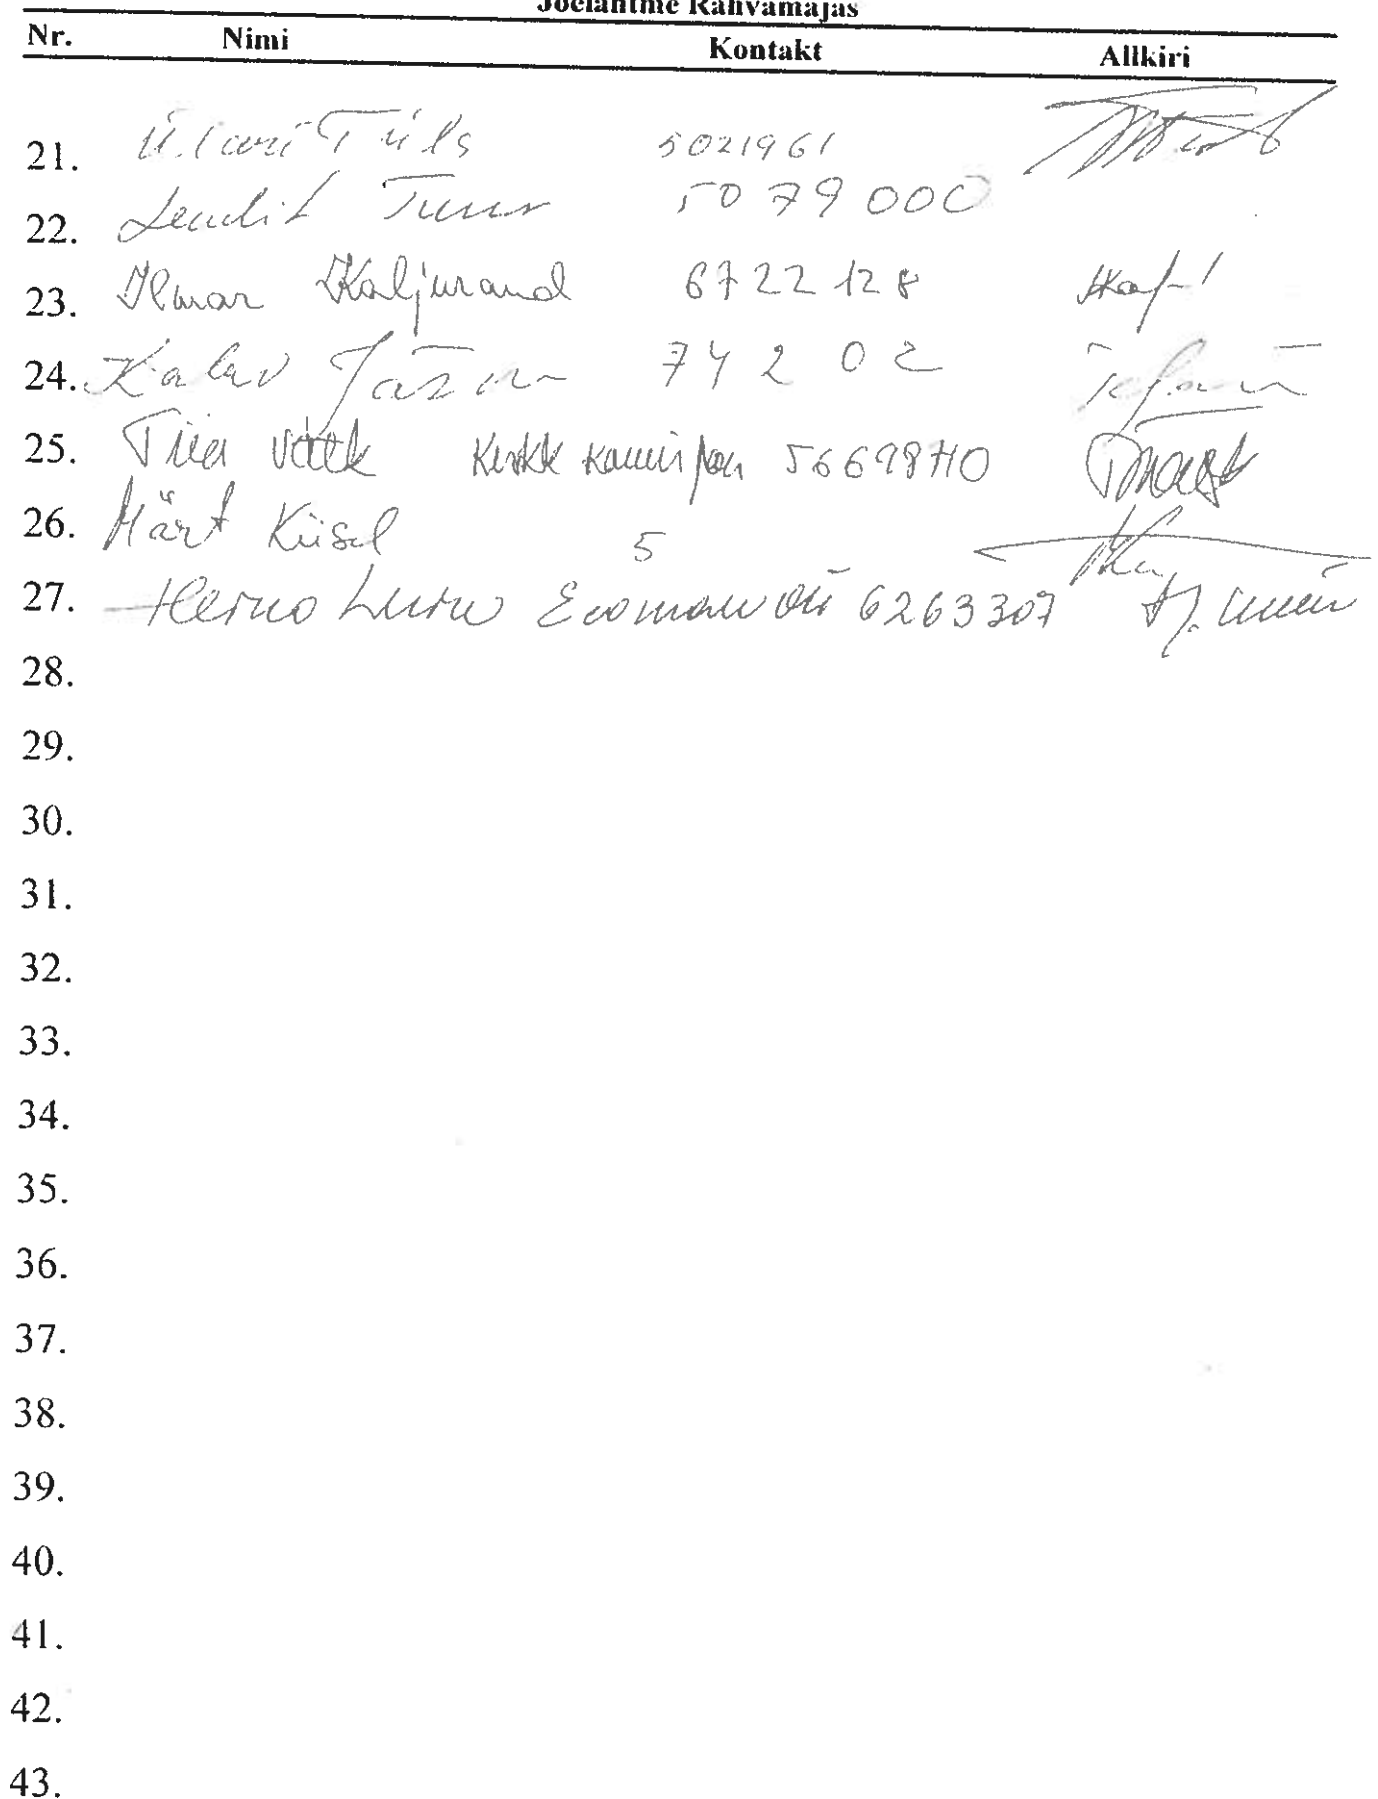 Jõelähtme Rahvamajas
Nr. Nimi Kontakt Allkiri
21. Ülari 5021961
22. Lembit 5079000
23. Ilmar Kaljurand 6722128
24. Kalev 74202
25. Tiia 56698710
26. Märt Kiisel 5
27. Heino Luru OÜ 6263307
28.
29.
30.
31.
32.
33.
34.
35.
36.
37.
38.
39.
40.
41.
42.
43.